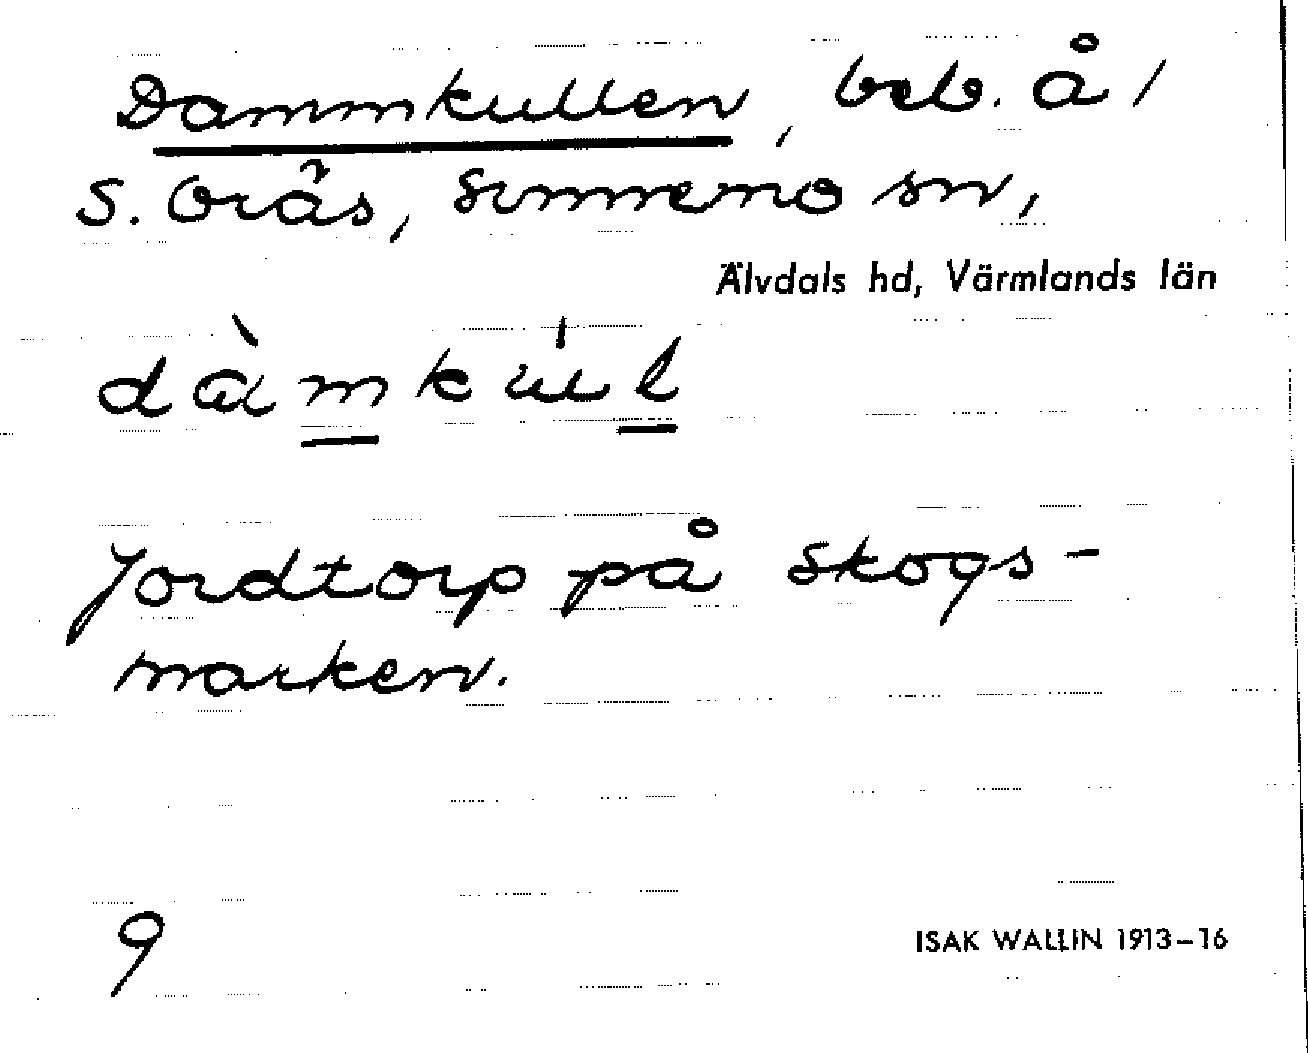 Dammkullen, beb. å
S. Örås, Sunnemo sn,
Älvdals hd, Värmlands län
dàmkúl
Jordtorp på skogs-
marken.
9
ISAK WALLIN 1913–16